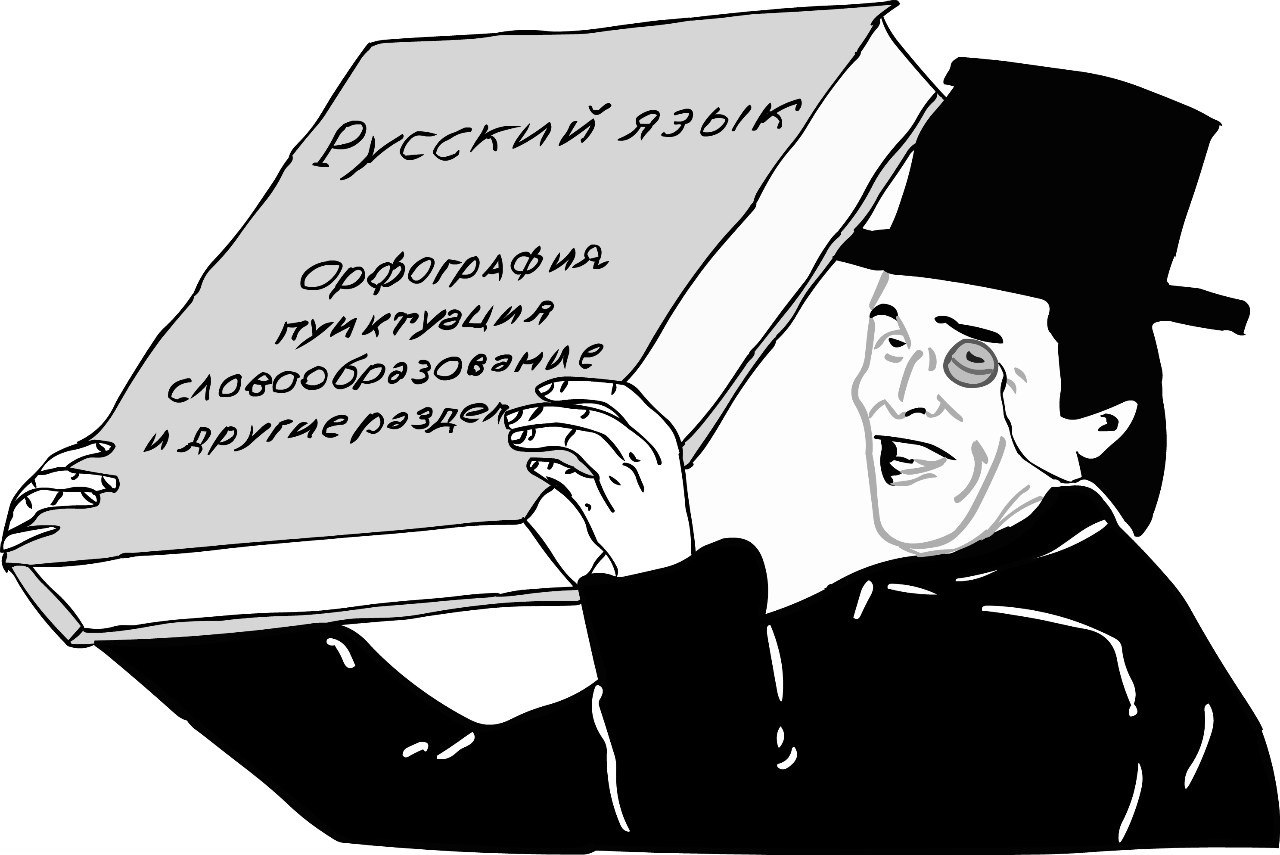 Русский язык
Орфография
пунктуация
словообразование
и другие раздел